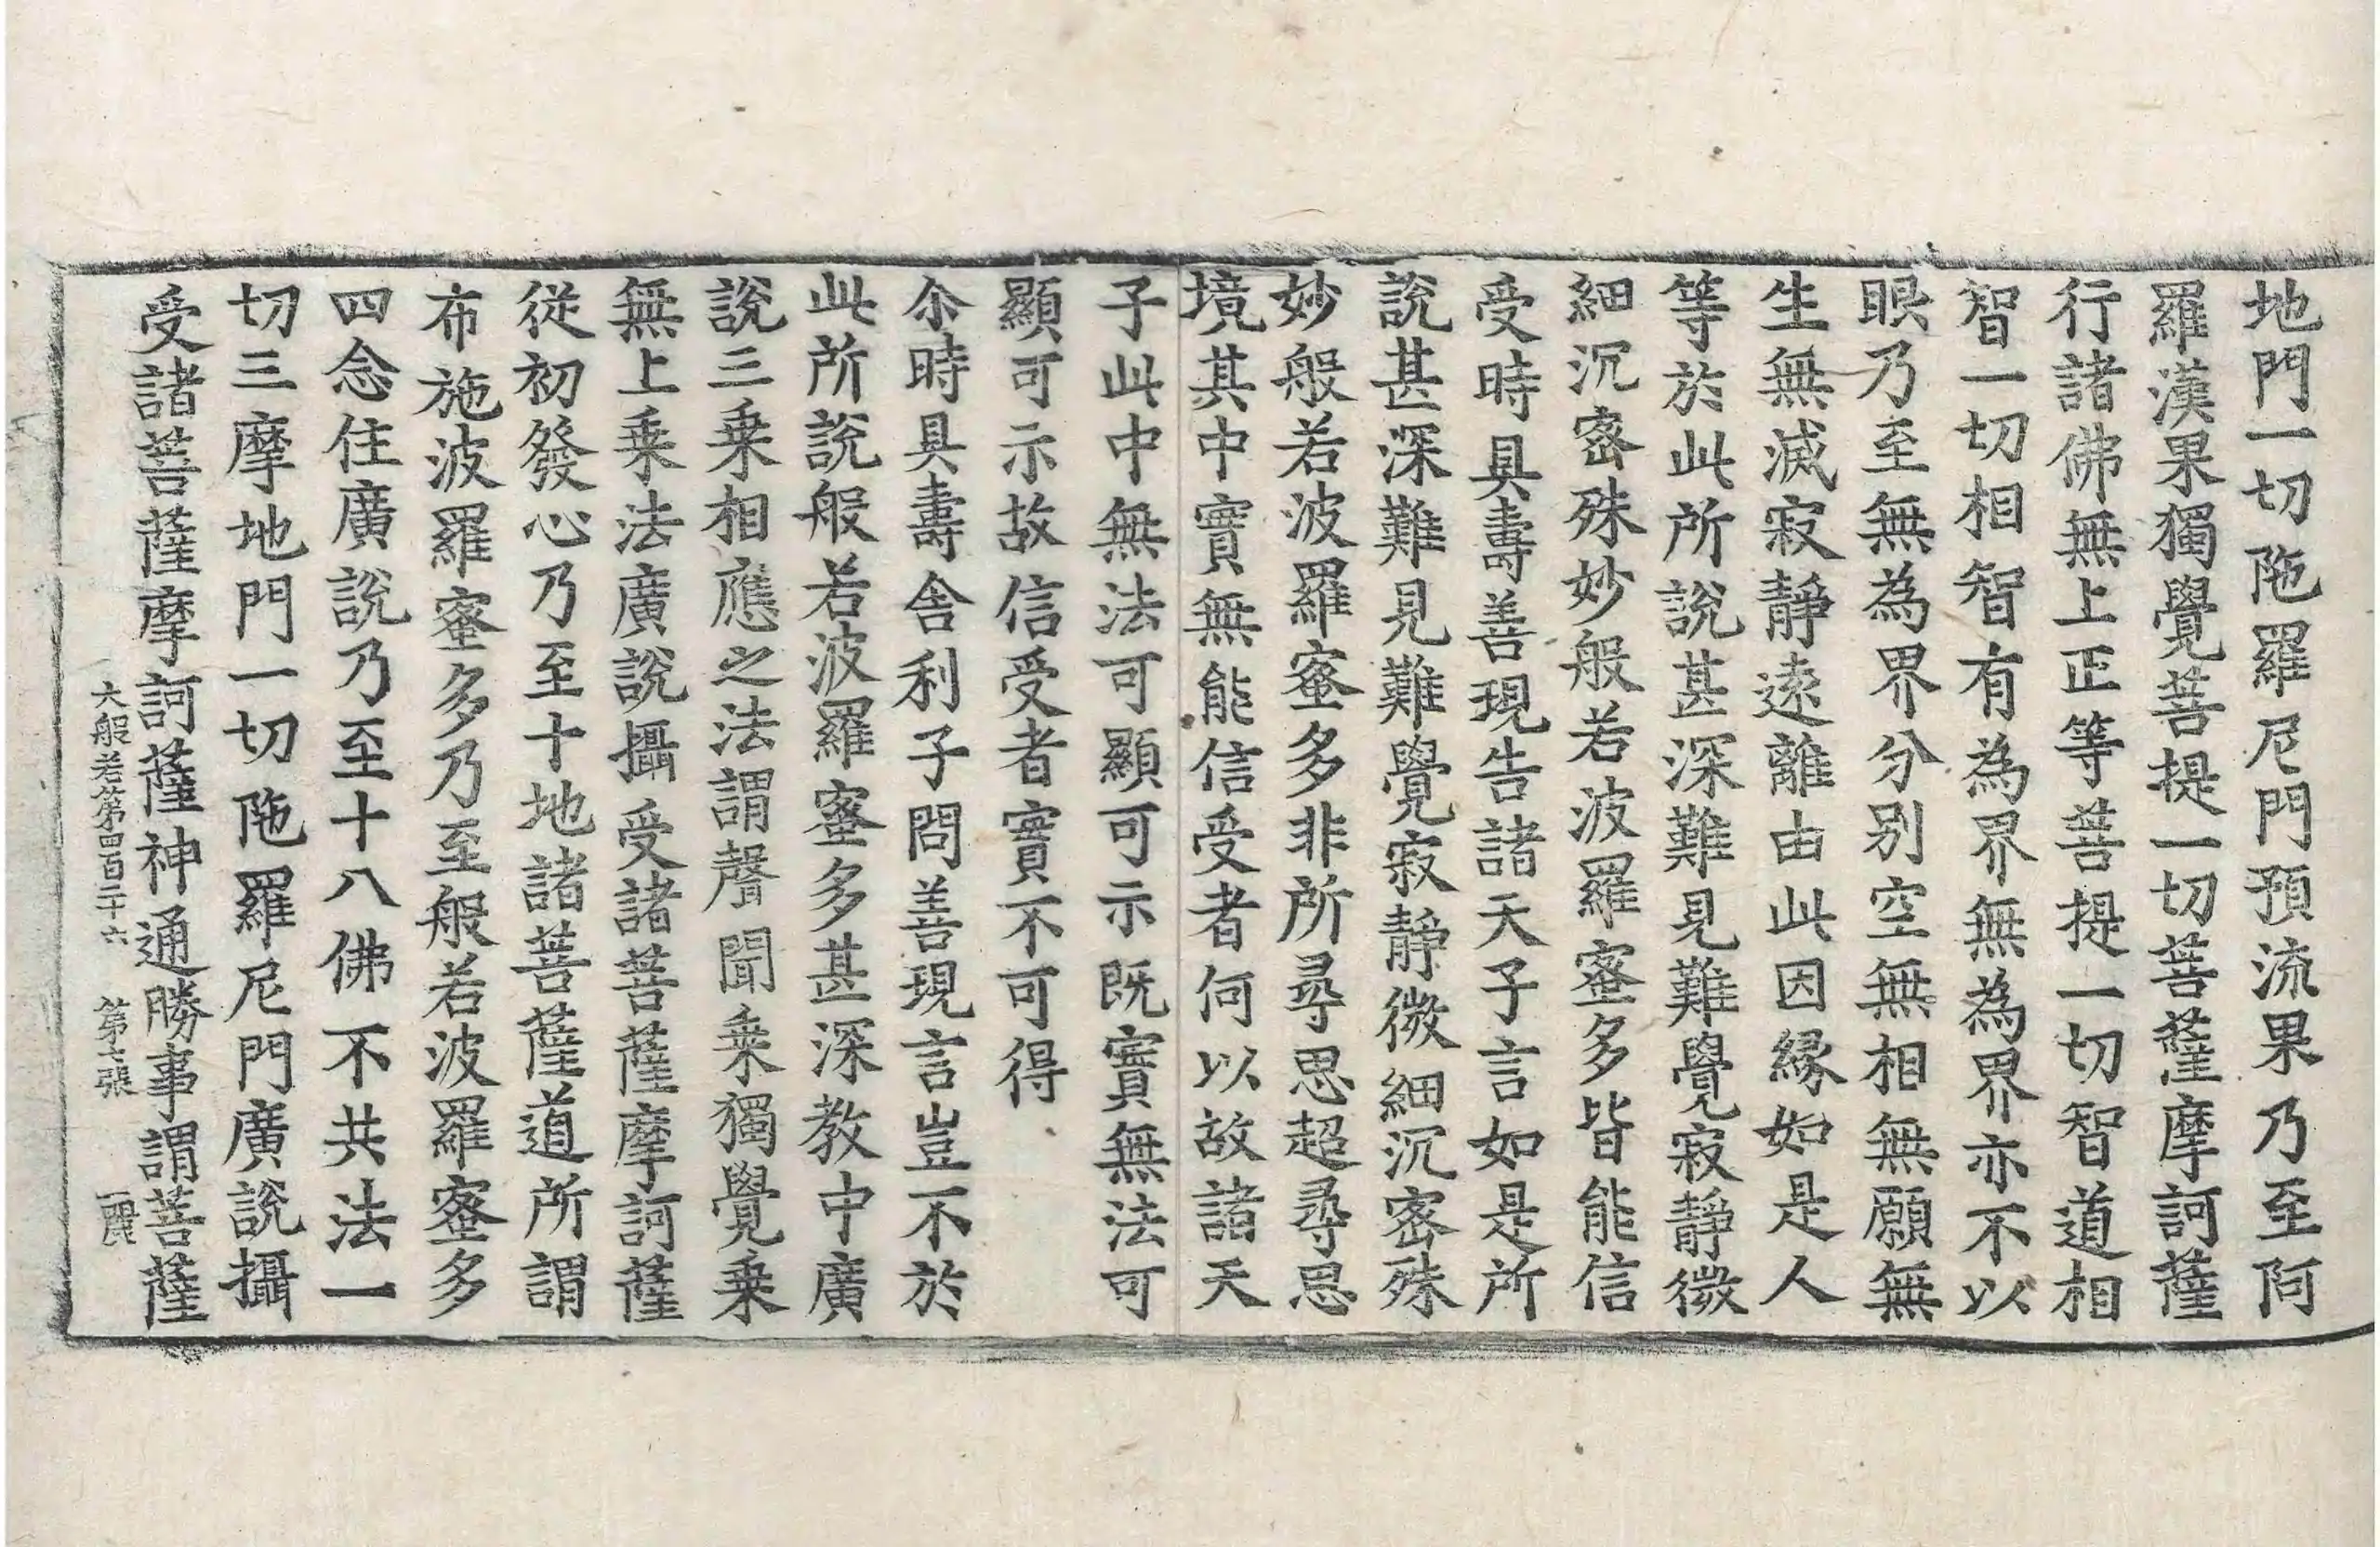 地門一切陁羅尼門預流果乃至阿
羅漢果獨覺菩提一切菩薩摩訶薩
行諸佛無上正等菩提一切智道相
智一切相智有為界無為界亦不以
眼乃至無為界分别空無相無願無
生無滅寂靜遠離由此因緣如是人
等於此所說甚深難見難覺寂靜微
細沉密殊妙般若波羅蜜多皆能信
受時具壽善現告諸天子言如是所
說甚深難見難覺寂靜微細沉密殊
妙般若波羅蜜多非所尋思超尋思
境其中實無能信受者何以故諸天
子此中無法可顯可示既實無法可
顯可示故信受者實不可得
尒時具壽舍利子問善現言豈不於
此所說般若波羅蜜多甚深教中廣
說三乗相應之法謂聲聞乗獨覺乗
無上乗法廣說攝受諸菩薩摩訶薩
從初發心乃至十地諸菩薩道所謂
布施波羅蜜多乃至般若波羅蜜多
四念住廣說乃至十八佛不共法一
切三摩地門一切陁羅尼門廣說攝
受諸菩薩摩訶薩神通勝事謂菩薩
大般若第四百二十六 第七張 麗